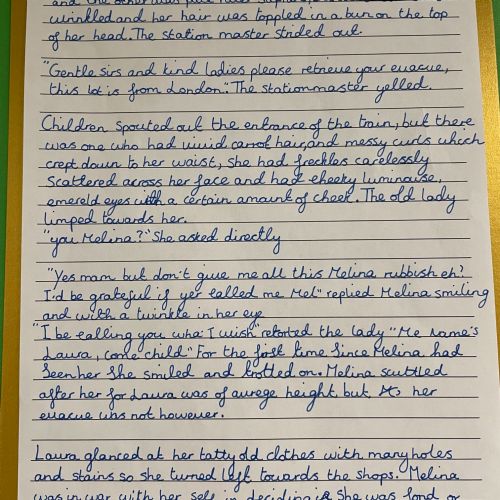 winkled and her hair was toppled in a bun on the top
of her head. The station master strided out.
"Gentle sirs and kind ladies please retrieve your evacue,
this lot is from London." The stationmaster yelled.
Children spouted out the entrance of the train, but there
was one who had vivid carrot hair, and messy curls which
crept down to her waist, She had freckles carelessly
Scattered across her face and had cheeky luminouse,
emereld eyes with a certain amount of cheek. The old lady
limped towards her.
"you Melina?" She asked directly
"Yes mam but don't give me all this Melina rubbish eh?
I'd be grateful if yer called me Mel" replied Melina smiling
and with a twinkle in her eye
"I be calling you wha' I wish" retorted the lady "Me name's
Laura, come child" For the first time Since Melina had
Seen her She smiled and trotted on. Melina scuttled
after her for Laura was of aurege height but her
evacue was not however.
Laura glanced at her tatty old clothes with many holes
and stains so she turned left towards the shops. Melina
was in war with her self in deciding if She was fond o